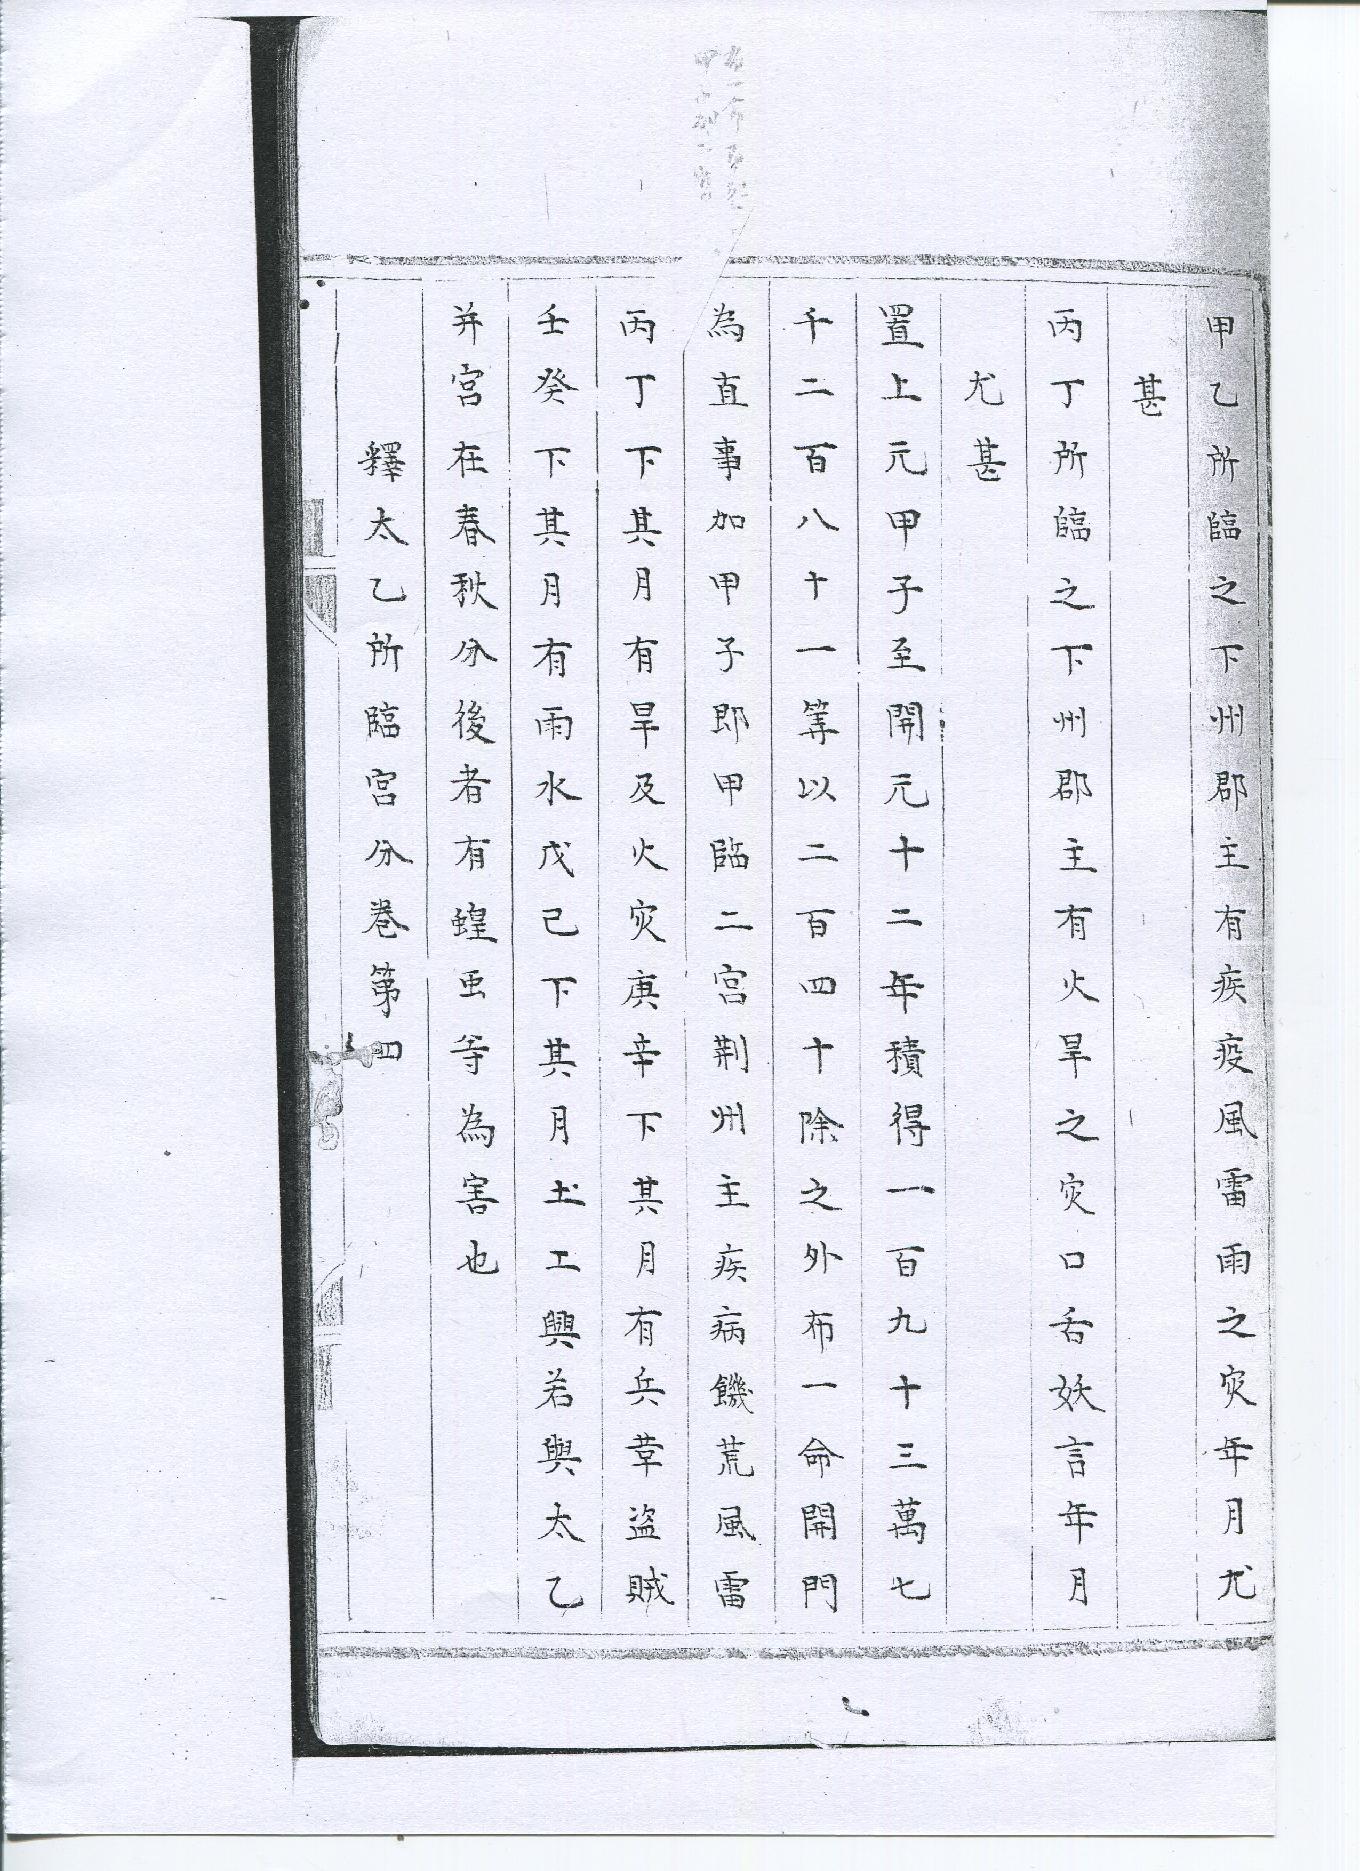 甲乙所臨之下州郡主有疾疫風雷雨之灾年月尤
甚
丙丁所臨之下州郡主有火旱之灾口舌妖言年月
尤甚
置上元甲子至開元十二年積得一百九十三萬七
千二百八十一筭以二百四十除之外布一命開門
為直事加甲子即甲臨二宫荆州主疾病饑荒風雷
丙丁下其月有旱及火灾庚辛下其月有兵革盗賊
壬癸下其月有雨水戊己下其月土工興若與太乙
并宫在春秋分後者有蝗虫等為害也
釋太乙所臨宫分卷第四